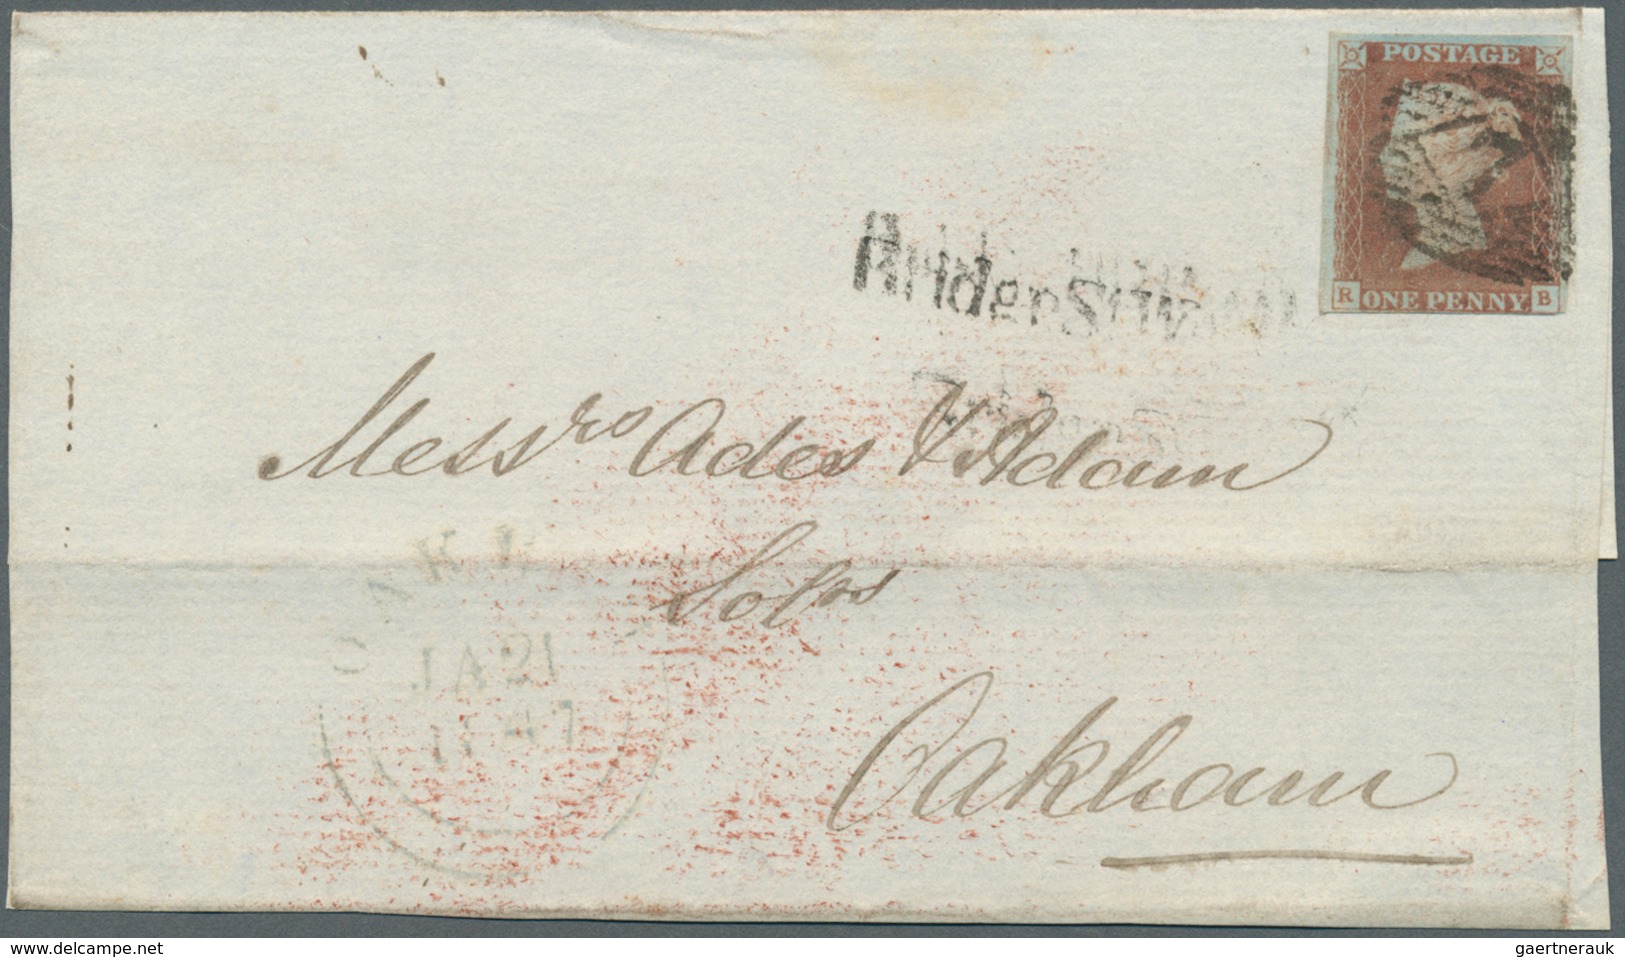 POSTAGE
R ONE PENNY B
Messrs Ades & Adam
Solrs
Oakham
JA 21
1847
delcampe.net
gaertnerauk